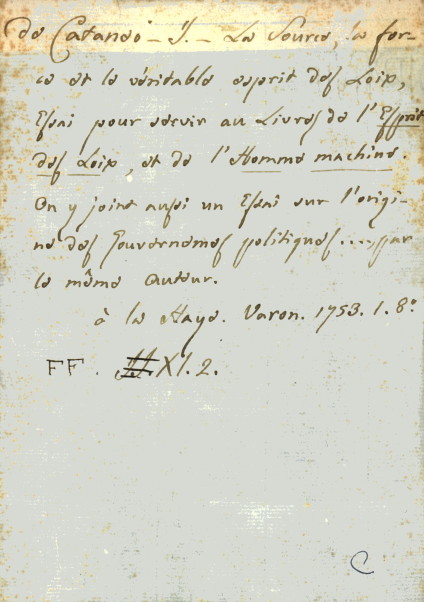 De Cataneo - J. - La Source, la for-
ce et le véritable esprit des Loix,
Essai pour servir au Livres de l'Esprit
des Loix, et de l'Homme machine.
On y joint aussi un Essai sur l'origi-
ne des Gouvernemes politiques.... par
le même Auteur.
à la Haye. Varon. 1753. 1. 8º
FF. XI. 2.
C